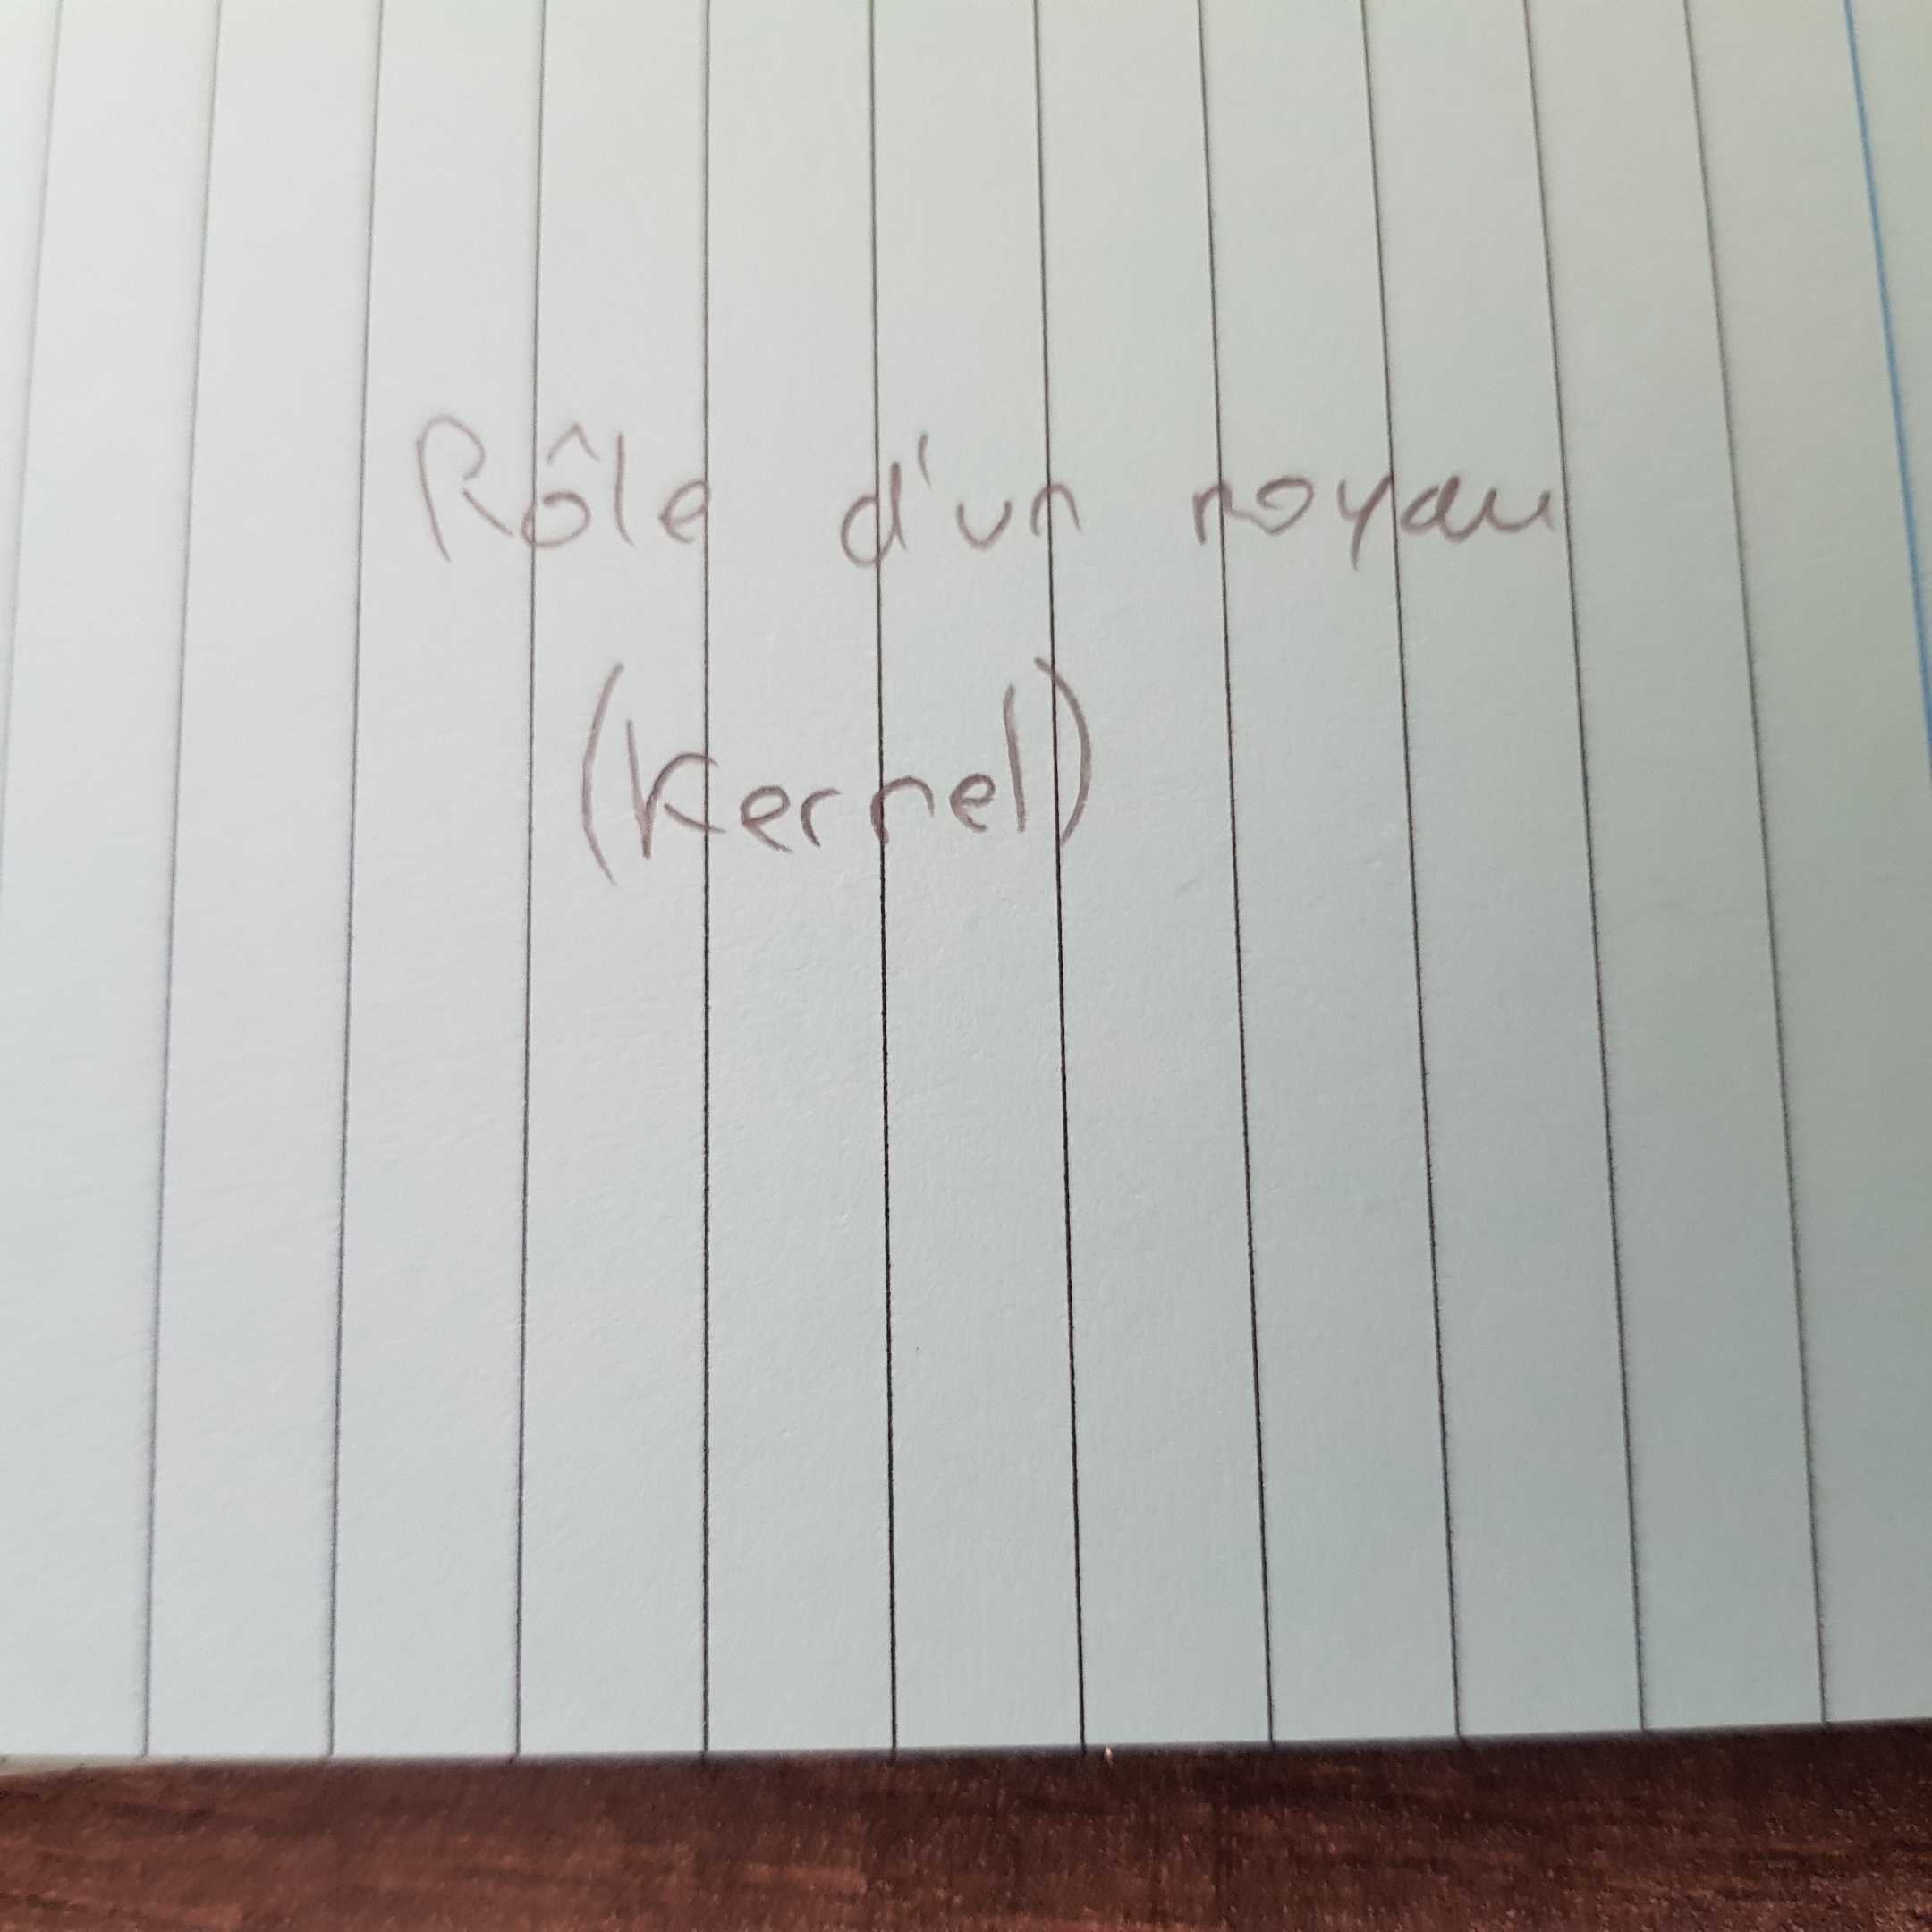 Rôle d'un noyau
(Kernel)